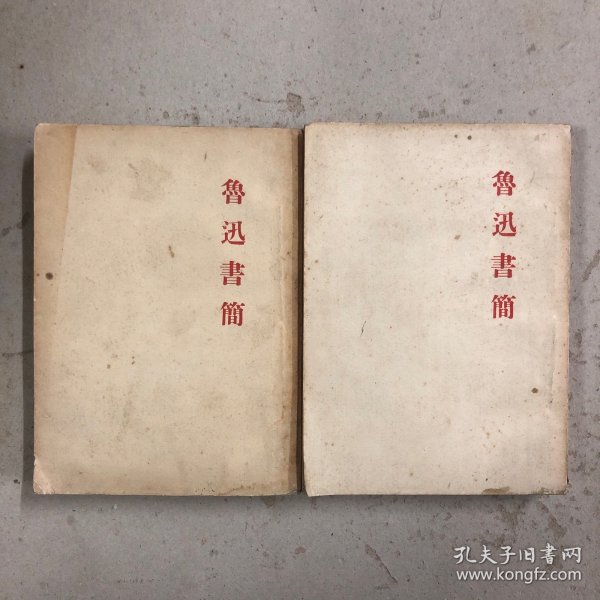 魯迅書簡
魯迅書簡
孔夫子旧書网
www.kongfz.com